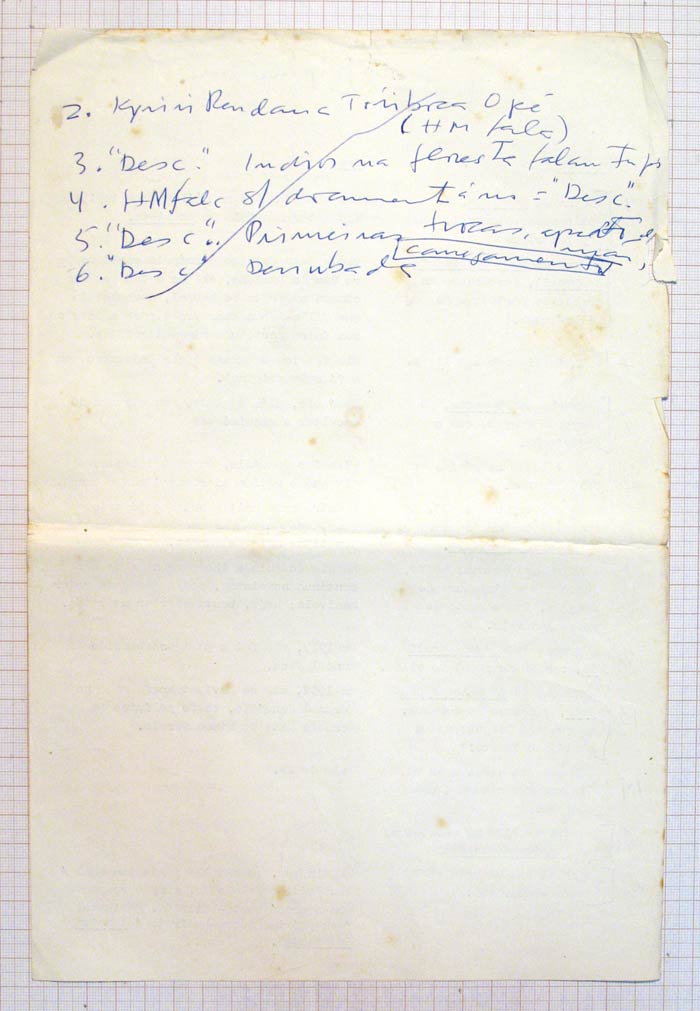 2. Kyriri Rendana Toríkrea Oké
(HM fala)
3. "Desc." Índios na floresta falam tupi
4. HM fala s/ documentário = "Desc".
5. "Desc". Primeiras trocas,
carregamento
6. "Desc" Derrubada